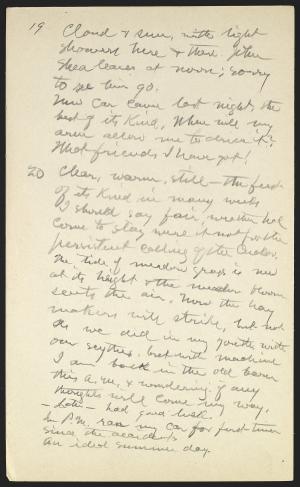 19 Cloud & sun, with light
showers here & there. John
Shea leaves at noon; sorry
to see him go.
New car came last night, the
best of its kind. When will my
arm allow me to drive it?
What friends I have got!
20 Clear, warm, still - the first
of its kind in many weeks
I should say fair weather had
come to stay were it not for the
persistent calling of the Cuckoo.
The tide of meadow grass is now
at its height & the meadow bloom
scents the air. Now the hay
makers will strike, but not
as we did in my youth with
our scythes, but with machine
I am back in the old barn
this a.m. & wondering if any
thoughts will come my way.
- Later - had good luck.
In P.M. ran my car for first time
since the accident
An ideal summer day